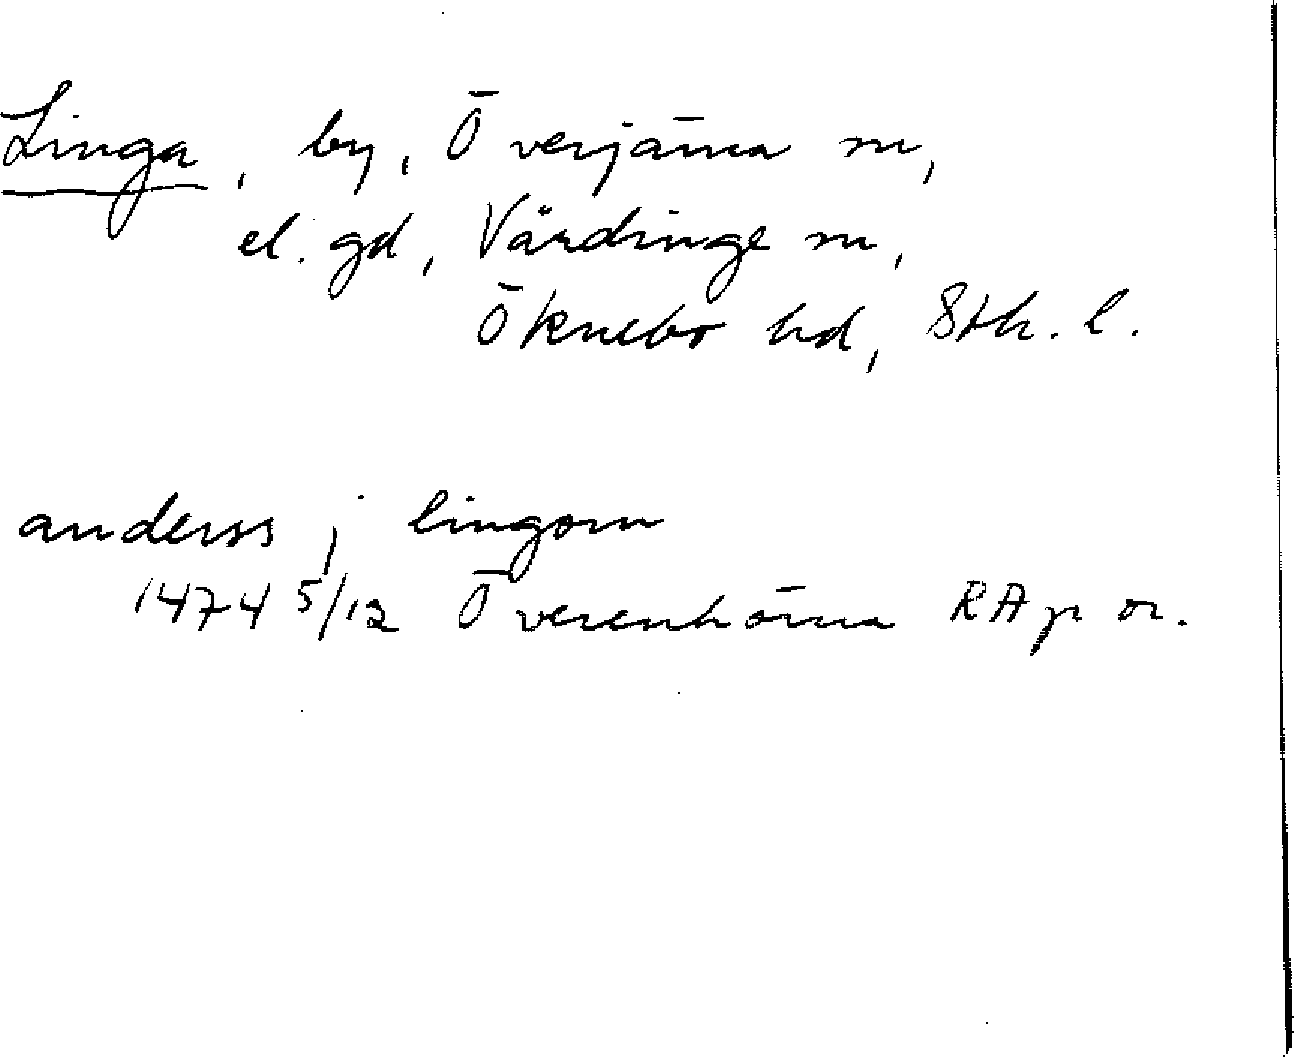 Linga, by, Överjärna sn,
el. gd, Vårdinge sn,
Öknebo hd, Sth. l.
anderss j lingom
1474 5/12 Överenhörna RAp or.